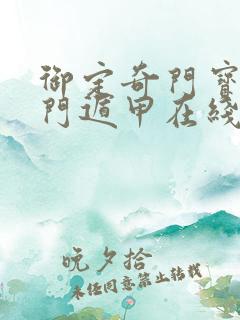 御定奇門寶
門遁甲在綫
晚夕拾
未经同意禁止转载